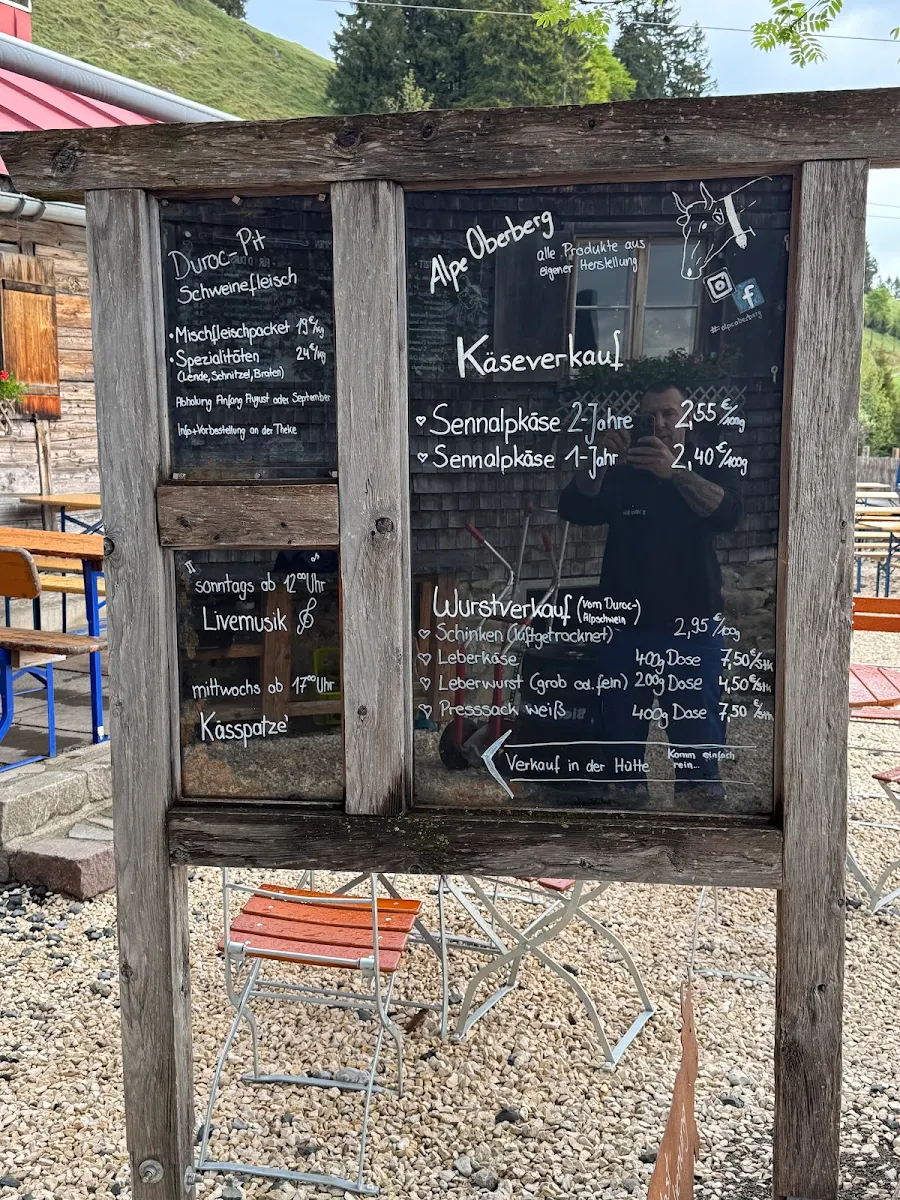 Duroc-Pit
Schweinefleisch
• Mischfleischpacket 19€/kg
• Spezialitäten 24€/kg
(Lende, Schnitzel, Braten)
Abholung Anfang August oder September
Info+Vorbestellung an der Theke
sonntags ab 12⁰⁰Uhr
Livemusik
mittwochs ab 17⁰⁰Uhr
Kässpatze'
Alpe Oberberg
alle Produkte aus
eigener Herstellung
#alpeoberberg
Käseverkauf
♡ Sennalpkäse 2-Jahre 2,55€/100g
♡ Sennalpkäse 1-Jahr 2,40€/100g
Wurstverkauf (vom Duroc-Alpschwein)
♡ Schinken (luftgetrocknet) 2,95€/100g
♡ Leberkäse 400g Dose 7,50€/Stk
♡ Leberwurst (grob od. fein) 200g Dose 4,50€/Stk
♡ Presssack weiß 400g Dose 7,50€/Stk
Verkauf in der Hütte Komm einfach rein...